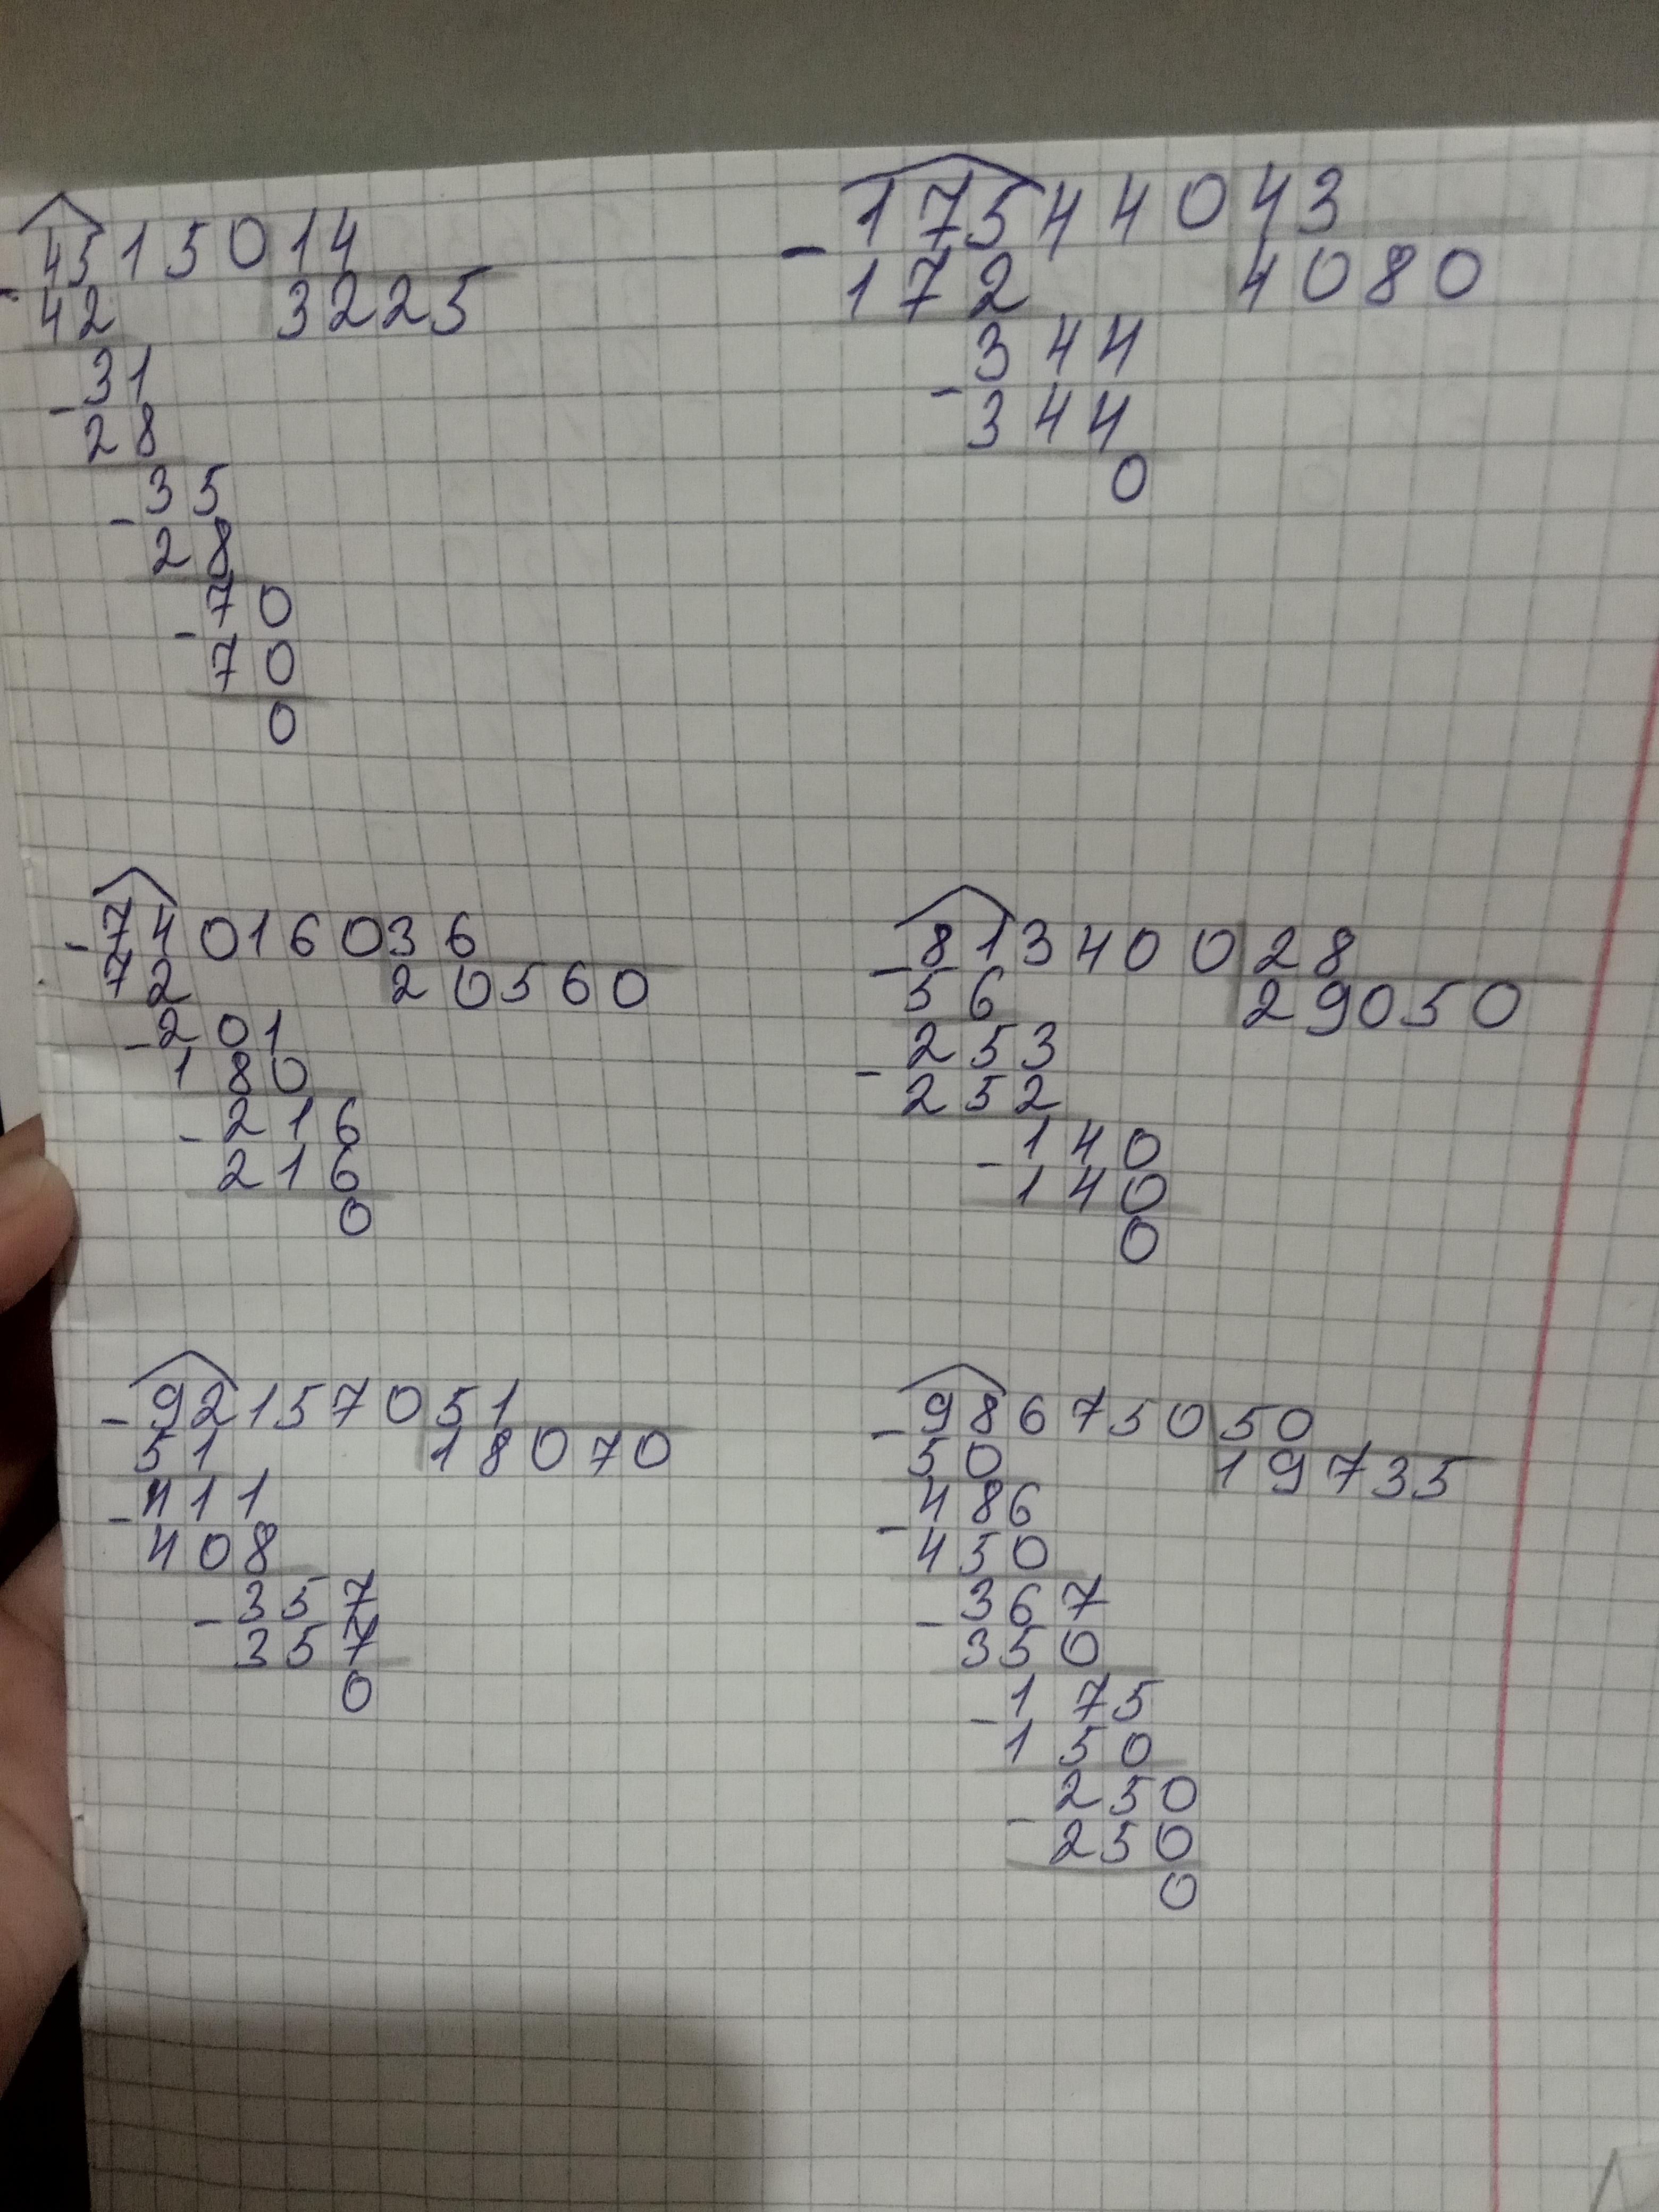 45150 14
- 42 3225
31
- 28
35
- 28
70
- 70
0
175440 43
- 172 4080
344
- 344
0
740160 36
- 72 20560
- 201
180
- 216
216
0
813400 28
- 56 29050
253
- 252
- 140
140
0
- 921570 51
51 18070
- 411
408
- 357
357
0
- 986750 50
50 19735
486
- 450
- 367
350
- 175
150
250
- 250
0